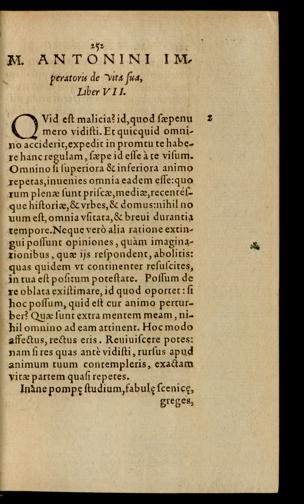 252
M. ANTONINI IM-
peratoris de vita sua,
Liber VII.
QVid est malicia? id, quod sæpenu
mero vidisti. Et quicquid omni-
no acciderit, expedit in promtu te habe-
re hanc regulam, sæpe id esse à te visum.
Omnino si superiora & inferiora animo
repetas, inuenies omnia eadem esse: quo
rum plenæ sunt priscæ, mediæ, recentés-
que historiæ, & vrbes, & domus: nihil no
uum est, omnia vsitata, & breui durantia
tempore. Neque verò alia ratione extin-
gui possunt opiniones, quàm imagina-
tionibus, quæ ijs respondent, abolitis:
quas quidem vt continenter resuscites,
in tua est positum potestate. Possum de
re oblata existimare, id quod oportet: si
hoc possum, quid est cur animo pertur-
ber? Quæ sunt extra mentem meam, ni-
hil omnino ad eam attinent. Hoc modo
affectus, rectus eris. Reuiuiscere potes:
nam si res quas antè vidisti, rursus apud
animum tuum contempleris, exactam
vitæ partem quasi repetes.
Inane pompę studium, fabulę scenicę,
greges,
2